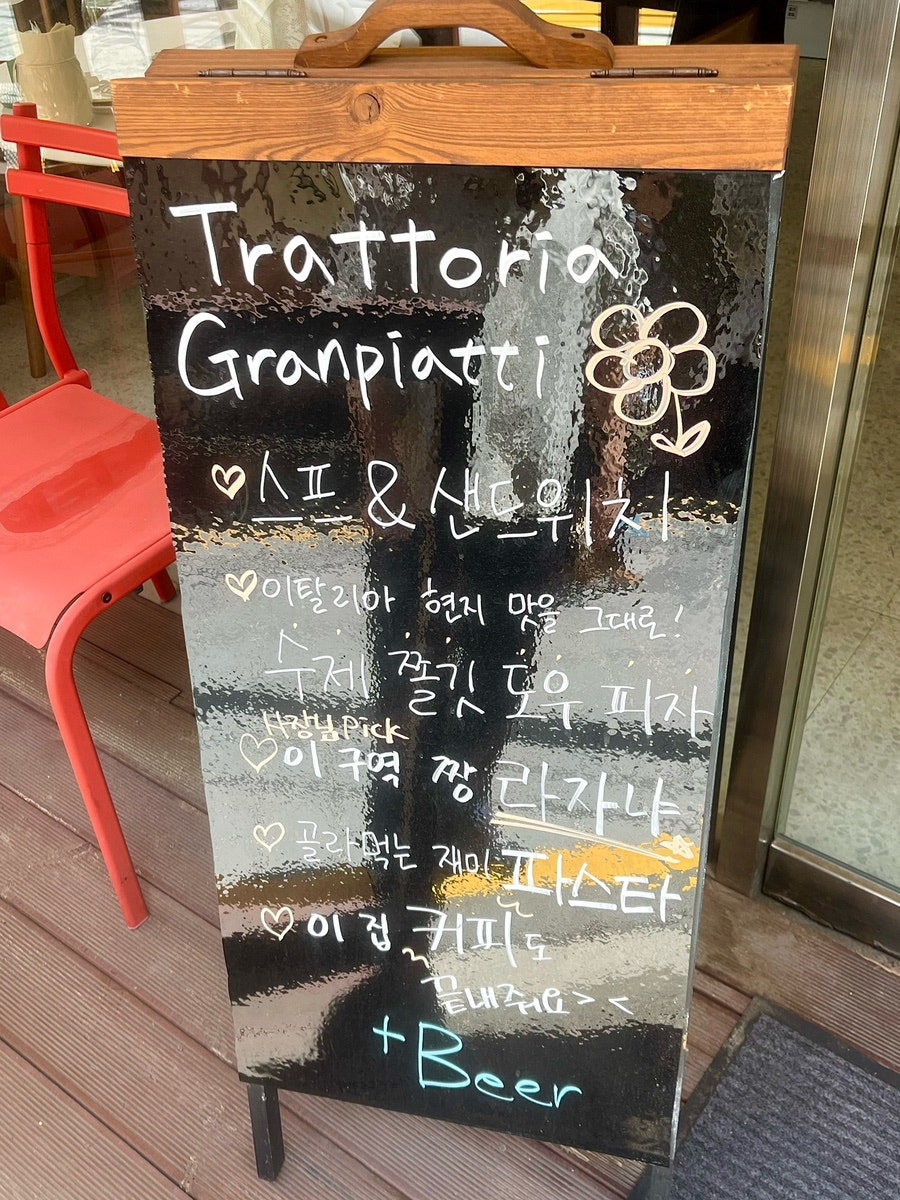 Trattoria
Granpiatti
♡ 스프 & 샌드위치
♡ 이탈리아 현지 맛을 그대로!
수제 쫄깃 도우 피자
사장님 Pick
♡ 이 구역 짱 라자냐
♡ 골라먹는 재미 파스타
♡ 이 집 커피도
끝내줘요> <
+Beer